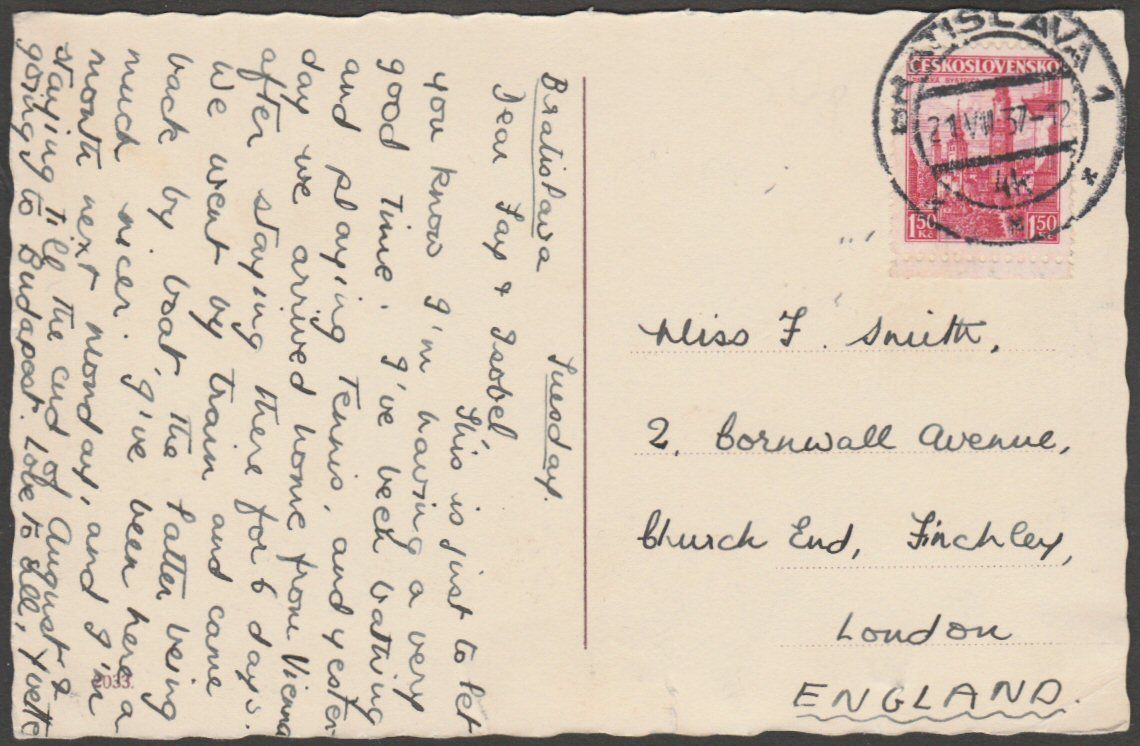 Bratislava Tuesday.
Dear Fay & Isobel,
This is just to let
you know I'm having a very
good time. I've been bathing
and playing Tennis, and yester-
day we arrived home from Vienna
after staying there for 6 days.
We went by train and came
back by boat, the latter being
much nicer. I've been here a
month next Monday, and I'm
staying till the end of August &
going to Budapest. Love to all, Yvette
2033.
BRATISLAVA 1
ČESKOSLOVENSKO
BYSTRICA
21.VIII.37-12
4h
1.50 Kč 1.50 Kč
Miss F. Smith,
2, Cornwall Avenue,
Church End, Finchley,
London
ENGLAND.